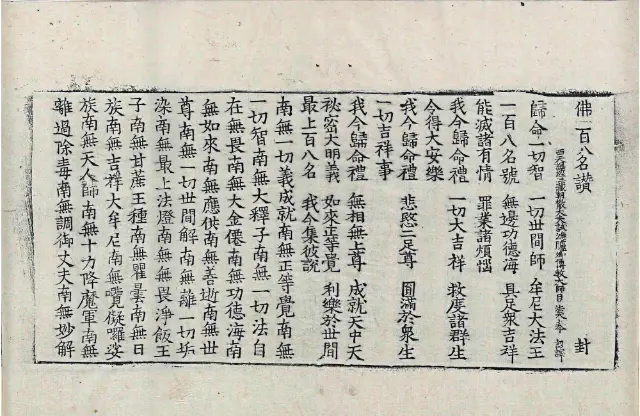 佛一百八名讚 封
西天譯經三藏朝散大夫試鴻臚傳教大師臣 奉 詔譯
歸命一切智 一切世間師 牟尼大法王
一百八名號 無邊功德海 具足衆吉祥
能滅諸有情 罪業諸煩惱
我今歸命禮 一切大吉祥 救度諸群生
令得大安樂
我今歸命禮 悲愍二足尊 圓滿於衆生
一切吉祥事
我今歸命禮 無相無上尊 成就天中天
祕密大明義 如來正等覺 利樂於世間
最上百八名 我今集彼説
南無一切義成就南無正等覺南無
一切智南無大釋子南無一切法自
在無畏南無大金僊南無功德海南
無如來南無應供南無善逝南無世
尊南無一切世間解南無離一切垢
染南無最上法燈南無無畏淨飯王
子南無甘蔗王種南無瞿曇南無日
族南無吉祥大牟尼南無儗囉娑
族南無天人師南無十力降魔軍南無
離過除毒南無調御丈夫南無妙解